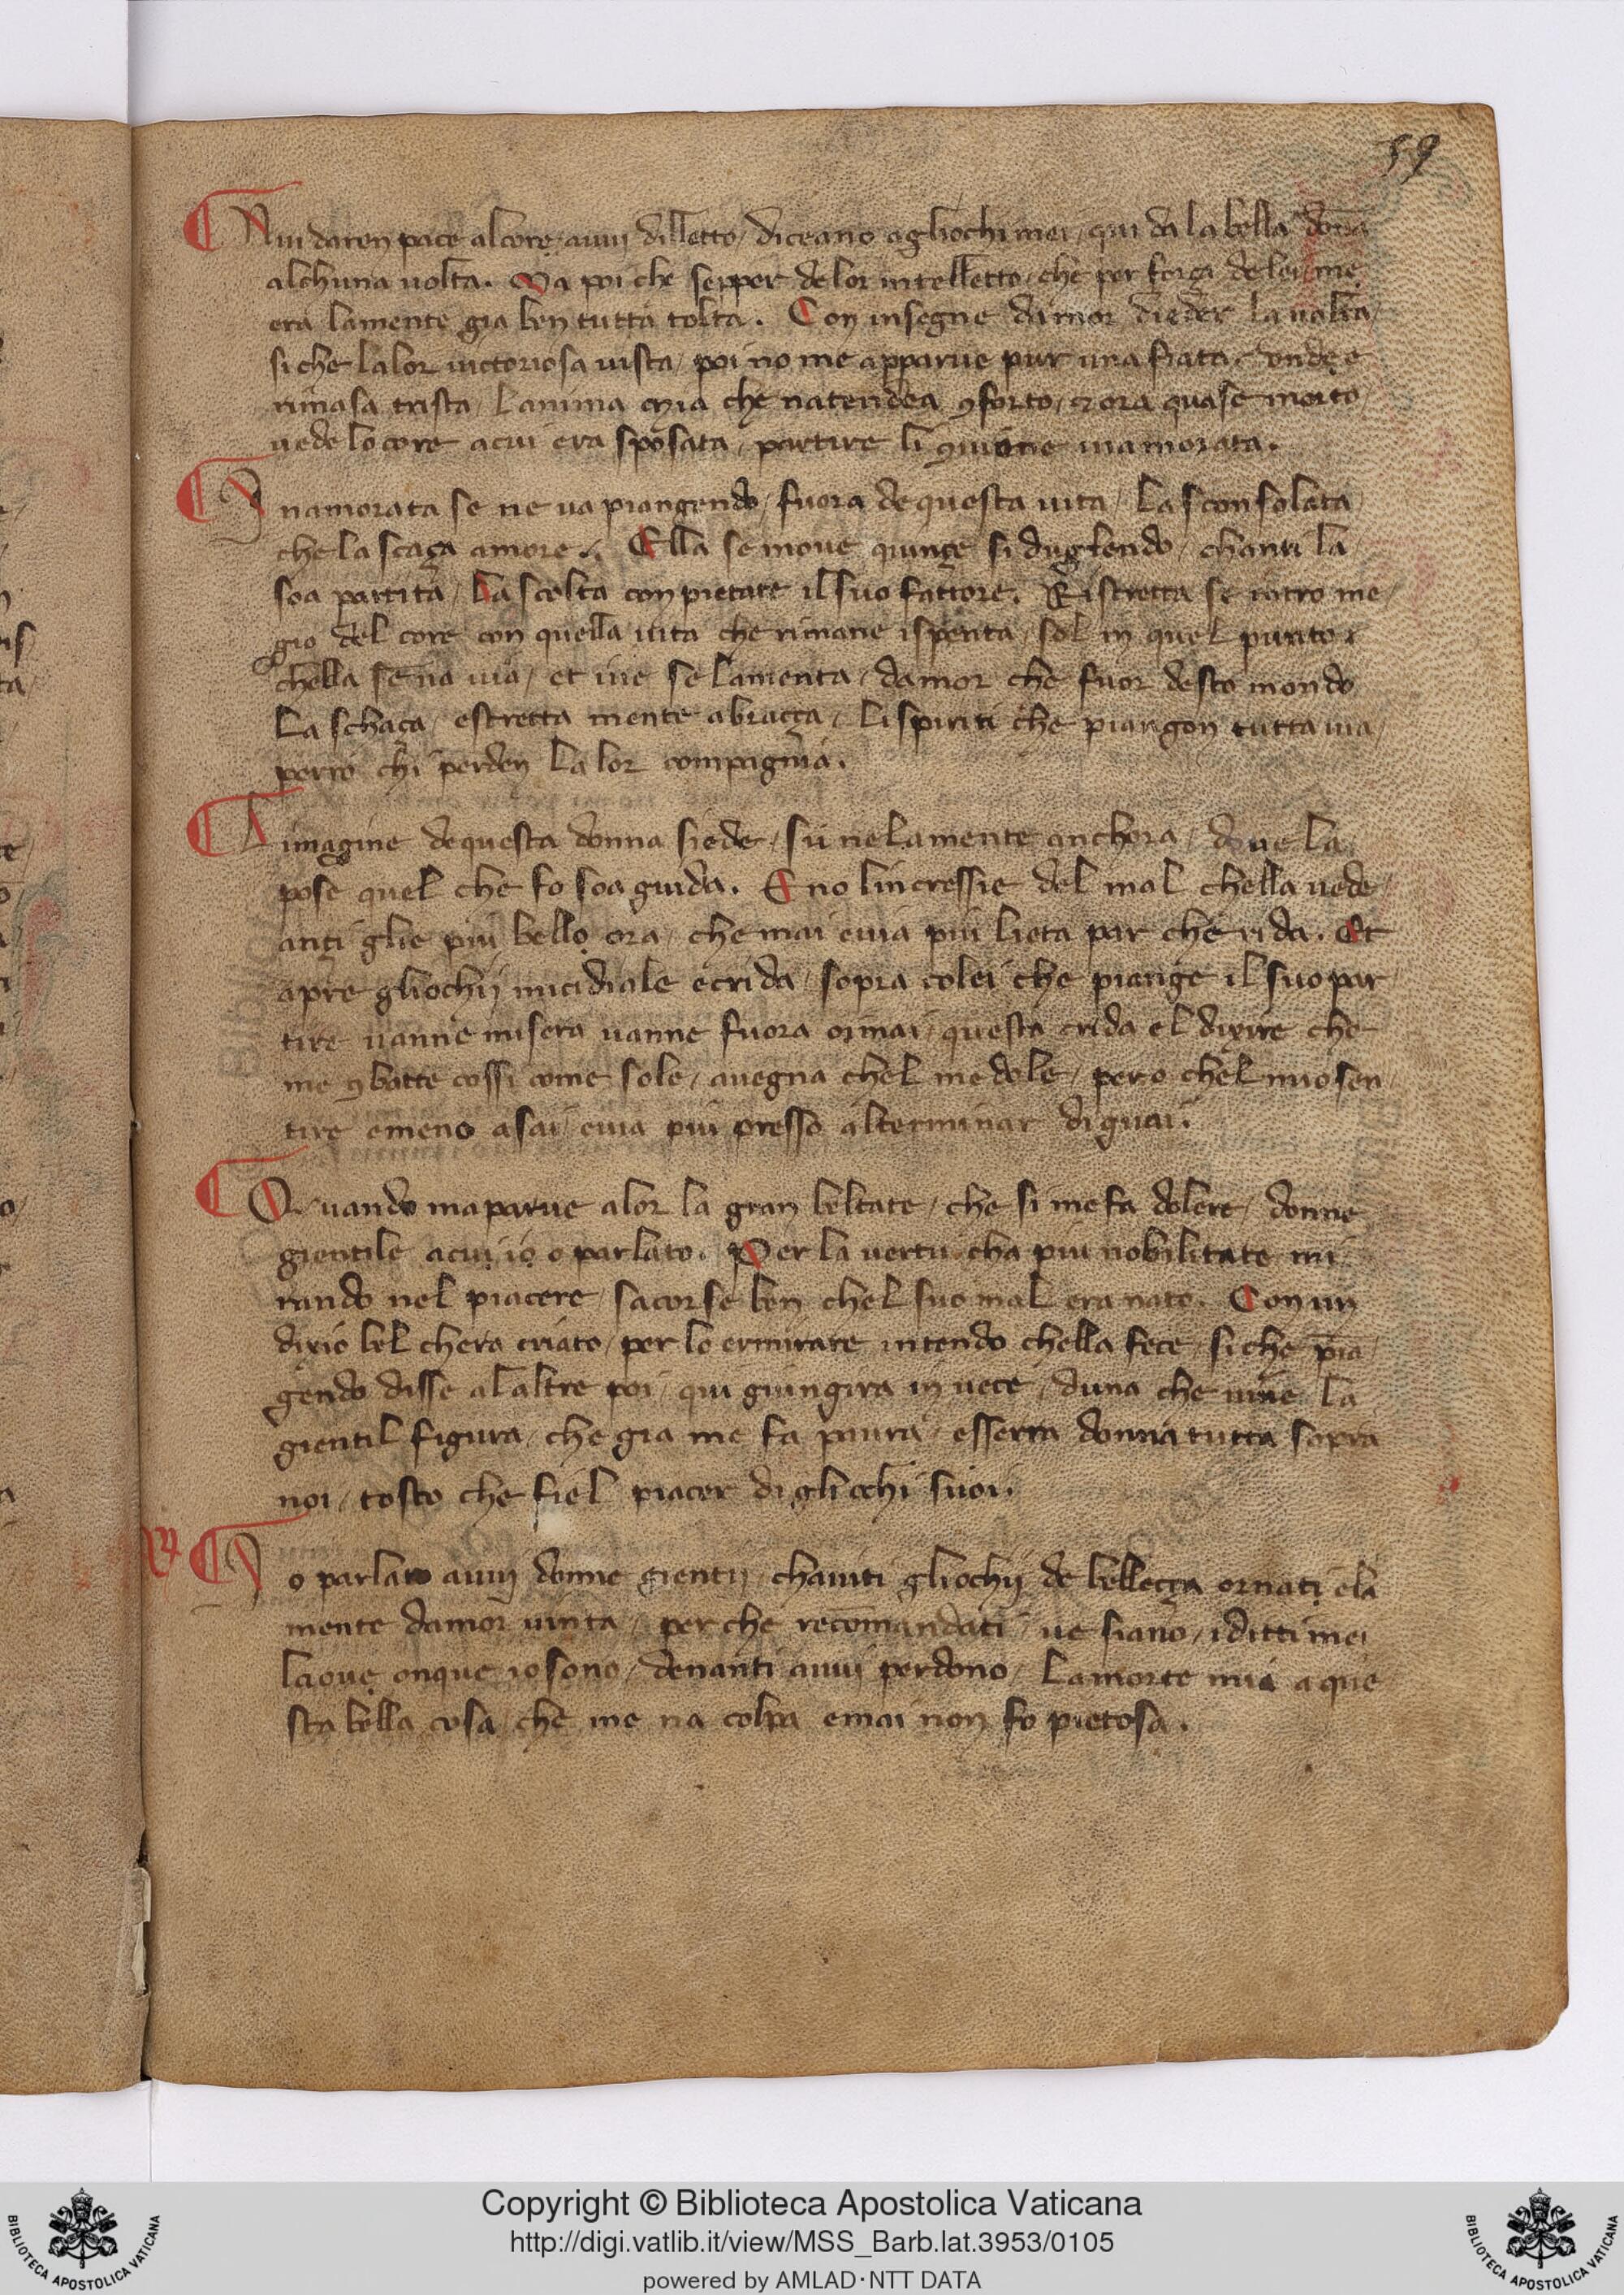 59
Nui daren pace alcore auui diletto / diceano agliochi mei / qui da la bella dona
alchuna uolta. Ma poi che sepper de lor intelletto / che per força de lei me
era lamente gia ben tutta tolta. Con insegne damor dieder la uolta /
si che lalor uictoriosa uista / poi no me apparue pur una fiata / onde e
rimasa trista / Lanima mia che natendea 9forto / 7 ora quase morto /
uede lo core acui era sposata / partire li 9uiene inamorata.
I namorata se ne ua piangendo / fuora dequesta uita / La sconsolata
che la scaça amore. Ella se moue quinçe si duglendo / chanti la
soa partita / La scolta con pietate il suo fattore. Ristretta se intro me
gio del core con quella uita che rimane ispenta / sol in quel punto
chella sena uia / et iue se lamenta / damor che fuor desto mondo
La schaça / estretta mente abracça / Li spiriti che piangon tutta uia /
perrò chi perden La lor compagnia.
L imagine dequesta donna siede / sú nelamente anchora / doue la
pose quel che fo soa guida. E no lincressie del mal chella uede
ançi glie piu bello ora / che mai euia piu lieta par che rida. Et
apre gliochij micidiale ecrida / sopra colei che piange il suo par
tire uanne misera uanne fuora ormai / questa crida el dixire che
me 9batte cossi come sole / auegna chel me dole / pero chel mio sen
tire emeno asai euia piu presso alterminar diguai.
Q uando maparue alor la gran beltate / che si me fa dolere / donne
gientile acui io o parlato. Per la uertu cha piu nobilitate mi
rando nel piacere / sacorse ben chel suo mal era nato. Con un
dixio bel chera criato / per lo ermirare intendo chella fece / si che pia
gendo disse alaltre poi / qui giungira in uece / duna che uine la
gientil figura / che gia me fa paura / esserra donna tutta sopra
noi / tosto che fiel piacer di gliochi suoi.
I o parlato auuij donne gientij / chauiti gliochij de bellecça ornati ela
mente damor uinta / per che recomandati / ue siano / iditti mei
laoue onque io sono / denanti auui perdono / La morte mia a que
sta bella cosa / che me na colpa emai non fo pietosa.
Copyright © Biblioteca Apostolica Vaticana
http://digi.vatlib.it/view/MSS_Barb.lat.3953/0105
powered by AMLAD·NTT DATA
BIBLIOTECA APOSTOLICA VATICANA
BIBLIOTECA APOSTOLICA VATICANA